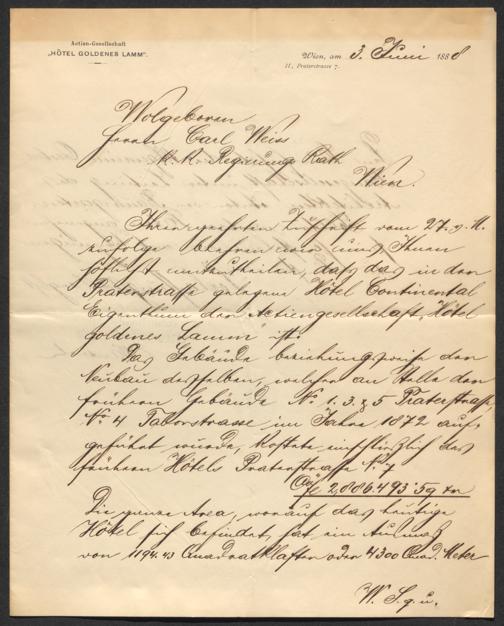 Actien-Gesellschaft
„HÔTEL GOLDENES LAMM“.
Wien, am 3. Juni 1888
II., Praterstrasse 7.
Wolgeboren
Herrn Carl Weiss
k. k. Regierungs Rath
Wien.
Ihrer geehrten Zuschrift vom 27. v. M.
zufolge beehren wir uns Ihnen
höflichst mitzutheilen, daß das in der
Praterstraße gelegene Hôtel Continental
Eigenthum der Actiengesellschaft „Hôtel
goldenes Lamm“ ist.
Das Gebäude beziehungsweise der
Neubau desselben, welcher an Stelle der
frühern Gebäude No. 1. 3. & 5 Praterstraße,
No. 4 Taborstrasse im Jahre 1872 auf-
geführt wurde, kostete einschließlich des
frühern Hôtels Praterstraße No. 7
2,886.493 59 kr
Die ganze Area, worauf das heutige
Hôtel sich befindet, hat ein Ausmaß
von 1194.43 Quadratklafter oder 4300 Quad. Meter
W. S. g. u.